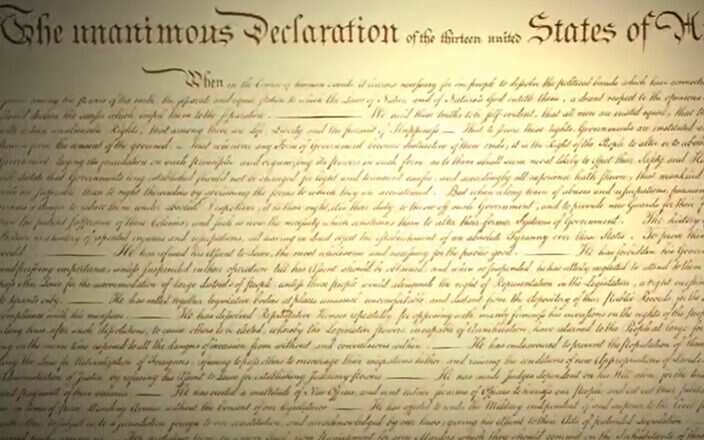 The unanimous Declaration of the thirteen united States of A
When in the Course of human events, it becomes necessary for one people to dissolve the political bands which have connected
among the powers of the earth, the separate and equal station to which the Laws of Nature and of Nature's God entitle them, a decent respect to the opinions
should declare the causes which impel them to the separation. We hold these truths to be self-evident, that all men are created equal, that
unalienable Rights, that among these are Life, Liberty and the pursuit of Happiness. That to secure these rights, Governments are instituted
from the consent of the governed, That whenever any Form of Government becomes destructive of these ends, it is the Right of the People to alter or to
Government, laying its foundation on such principles and organizing its powers in such form, as to them shall seem most likely to effect their Safety and
dictate that Governments long established should not be changed for light and transient causes; and accordingly all experience hath shewn, that mankind
are sufferable, than to right themselves by abolishing the forms to which they are accustomed. But when a long train of abuses and usurpations, pursuing
a design to reduce them under absolute Despotism, it is their right, it is their duty, to throw off such Government, and to provide new Guards for their
the patient sufferance of these Colonies; and such is now the necessity which constrains them to alter their former Systems of Government. The history of
is a history of repeated injuries and usurpations, all having in direct object the establishment of an absolute Tyranny over these States. To prove this
world. He has refused his Assent to Laws, the most wholesome and necessary for the public good. He has forbidden his Governors
and pressing importance, unless suspended in their operation till his Assent should be obtained; and when so suspended, he has utterly neglected to attend to them.
other Laws for the accommodation of large districts of people, unless those people would relinquish the right of Representation in the Legislature, a right
to tyrants only. He has called together legislative bodies at places unusual, uncomfortable, and distant from the depository of their Public Records, for the
compliance with his measures. He has dissolved Representative Houses repeatedly, for opposing with manly firmness his invasions on the rights of the people.
long time, after such dissolutions, to cause others to be elected; whereby the Legislative powers, incapable of Annihilation, have returned to the People at large for
in the mean time exposed to all the dangers of invasion from without, and convulsions within. He has endeavoured to prevent the population of these
the Laws for Naturalization of Foreigners; refusing to pass others to encourage their migrations hither, and raising the conditions of new Appropriations of Lands.
Administration of Justice, by refusing his Assent to Laws for establishing Judiciary powers. He has made Judges dependent on his Will alone, for the
and payment of their salaries. He has erected a multitude of New Offices, and sent hither swarms of Officers to harrass our people, and eat out their
in times of peace, Standing Armies without the Consent of our legislatures. He has affected to render the Military independent of and superior to the Civil
to subject us to a jurisdiction foreign to our constitution, and unacknowledged by our laws; giving his Assent to their Acts of pretended Legislation: